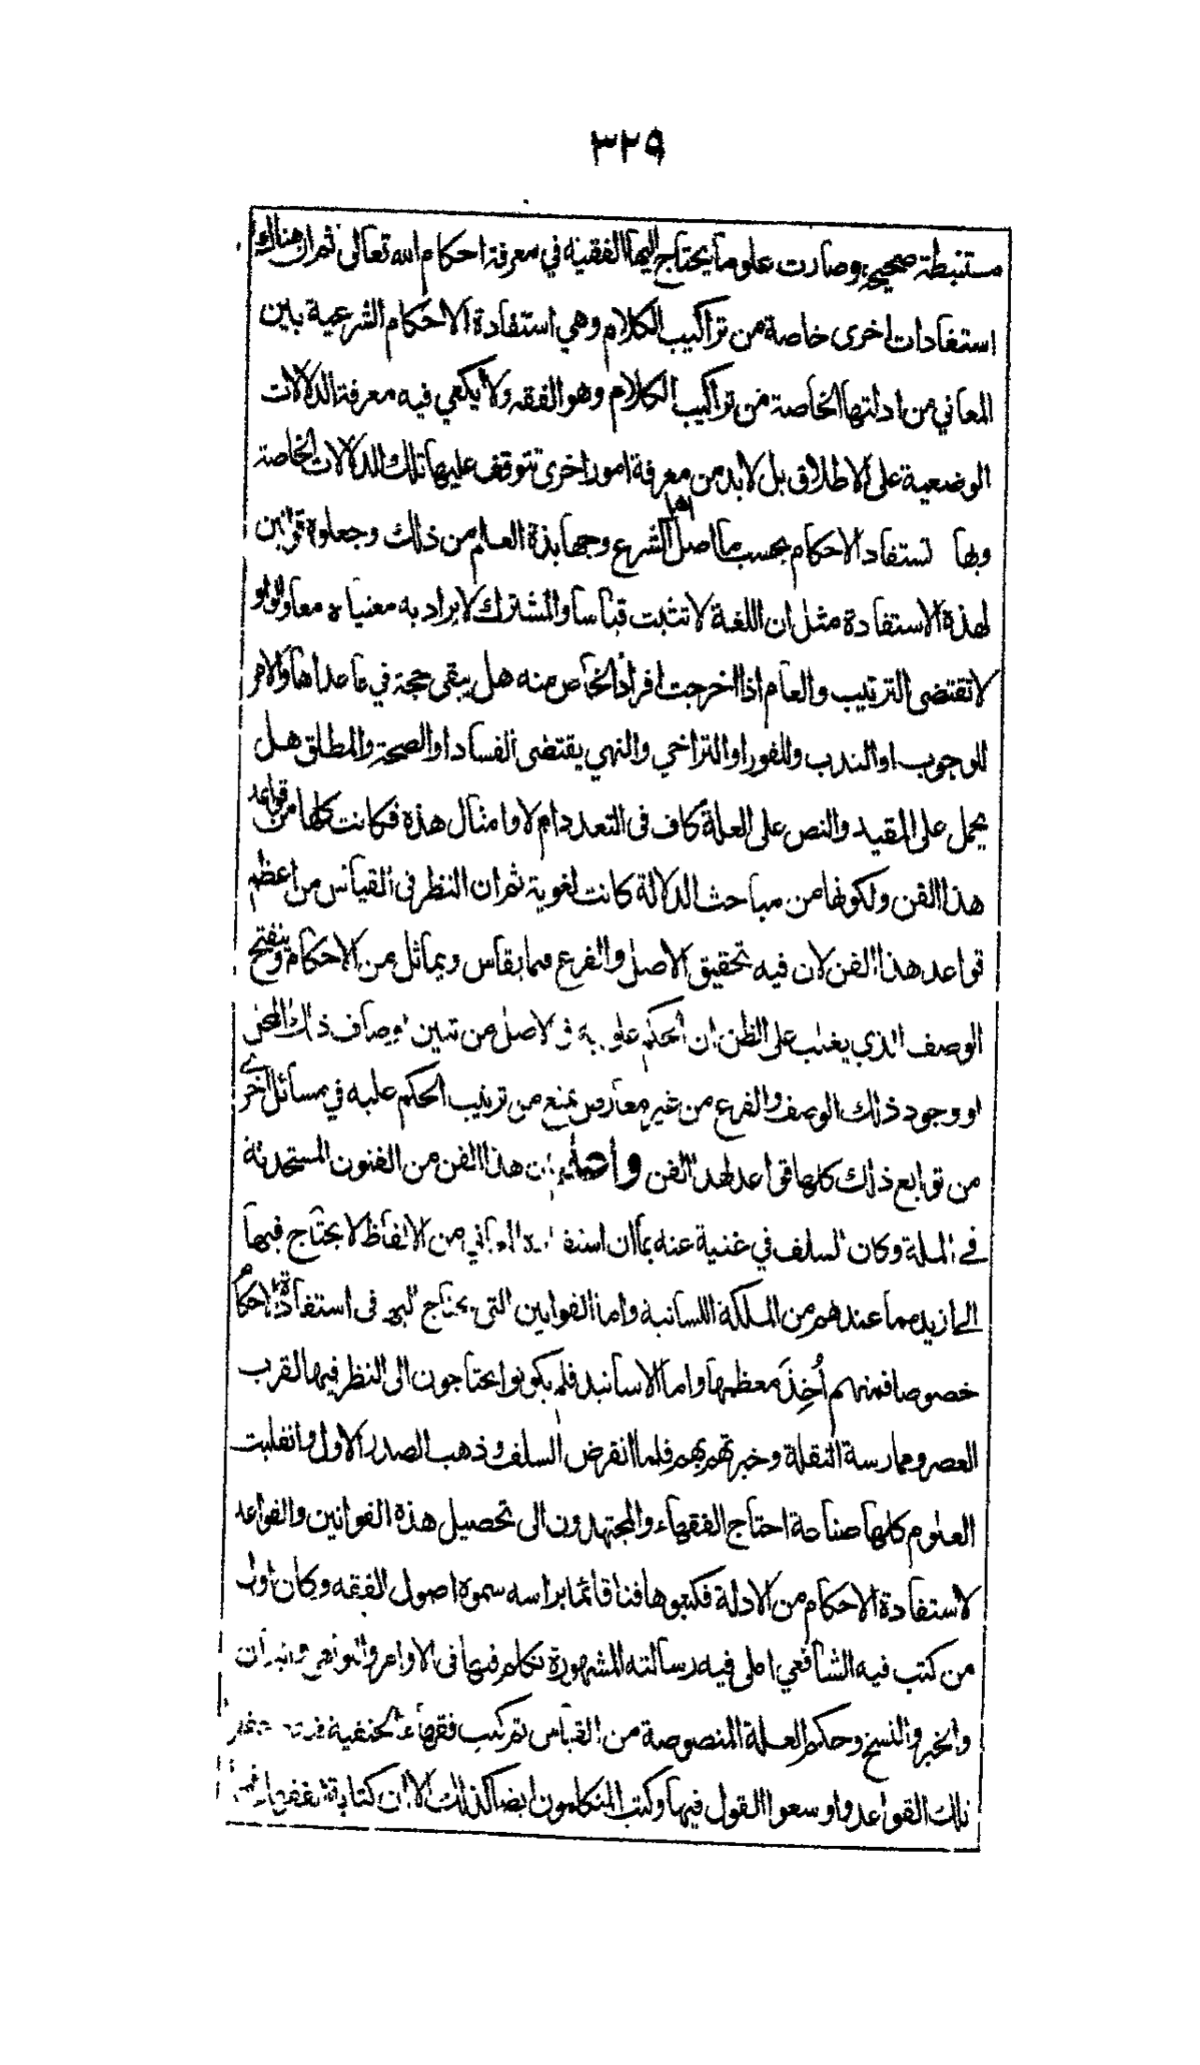 ٣٢٩
مستنبطة صحيحة وصارت علوما يحتاج اليها الفقيه في معرفة احكام الله تعالى ثم ان هناك
استفادات اخرى خاصة من تراكيب الكلام وهي استفادة الاحكام الشرعية بين
المعاني من ادلتها الخاصة من تراكيب الكلام وهو الفقه ولا يكفي فيه معرفة الدلالات
الوضعية على الاطلاق بل لابد من معرفة امور اخرى تتوقف عليها تلك الدلالات الخاصة
وبها تستفاد الاحكام بحسب ما اصل اهل الشرع وجهابذة العلم من ذلك وجعلوه قوانين
لهذه الاستفادة مثل ان اللغة لا تثبت قياسا والمشترك لا يراد به معنياه معا والواو
لا تقتضى الترتيب والعام اذا اخرجت افراد الخاص منه هل يبقى حجة في ما عداها والامر
للوجوب او الندب وللفور او التراخي والنهي يقتضى الفساد او الصحة والمطلق هل
يحمل على المقيد والنص على العلة كاف فى التعدد ام لا وامثال هذه فكانت كلها من قواعد
هذا الفن ولكونها من مباحث الدلالة كانت لغوية ثم ان النظر فى القياس من اعظم
قواعد هذا الفن لان فيه تحقيق الاصل والفرع فيما يقاس ويماثل من الاحكام وينفتح
الوصف الذي يغلب على الظن ان الحكم علق به فى الاصل من تبين اوصاف ذلك المحل
او وجود ذلك الوصف والفرع من غير معارض يمنع من ترتيب الحكم عليه في مسائل اخرى
من توابع ذلك كلها قواعد لهذا الفن واعلم ان هذا الفن من الفنون المستحدثة
في الملة وكان السلف في غنية عنه بما ان استفادة المعاني من الالفاظ لا يحتاج فيها
الى ازيد مما عندهم من الملكة اللسانية واما القوانين التي يحتاج اليها فى استفادة الاحكام
خصوصا فمنهم أُخِذَ معظمها واما الاسانيد فلم يكونوا يحتاجون الى النظر فيها لقرب
العصر وممارسة النقلة وخبرتهم بهم فلما انقرض السلف وذهب الصدر الاول وانقلبت
العلوم كلها صناعة احتاج الفقهاء والمجتهدون الى تحصيل هذه القوانين والقواعد
لاستفادة الاحكام من الادلة فكتبوها فنا قائما براسه سموه اصول الفقه وكان اول
من كتب فيه الشافعي املى فيه رسالته المشهورة تكلم فيها فى الاوامر والنواهي والبيان
والخبر والنسخ وحكم العلة المنصوصة من القياس ثم كتب فقهاء الحنفية فيه
تلك القواعد واوسعوا القول فيها وكتب المتكلمون ايضا كذلك الا ان كتابة الفقهاء فيها